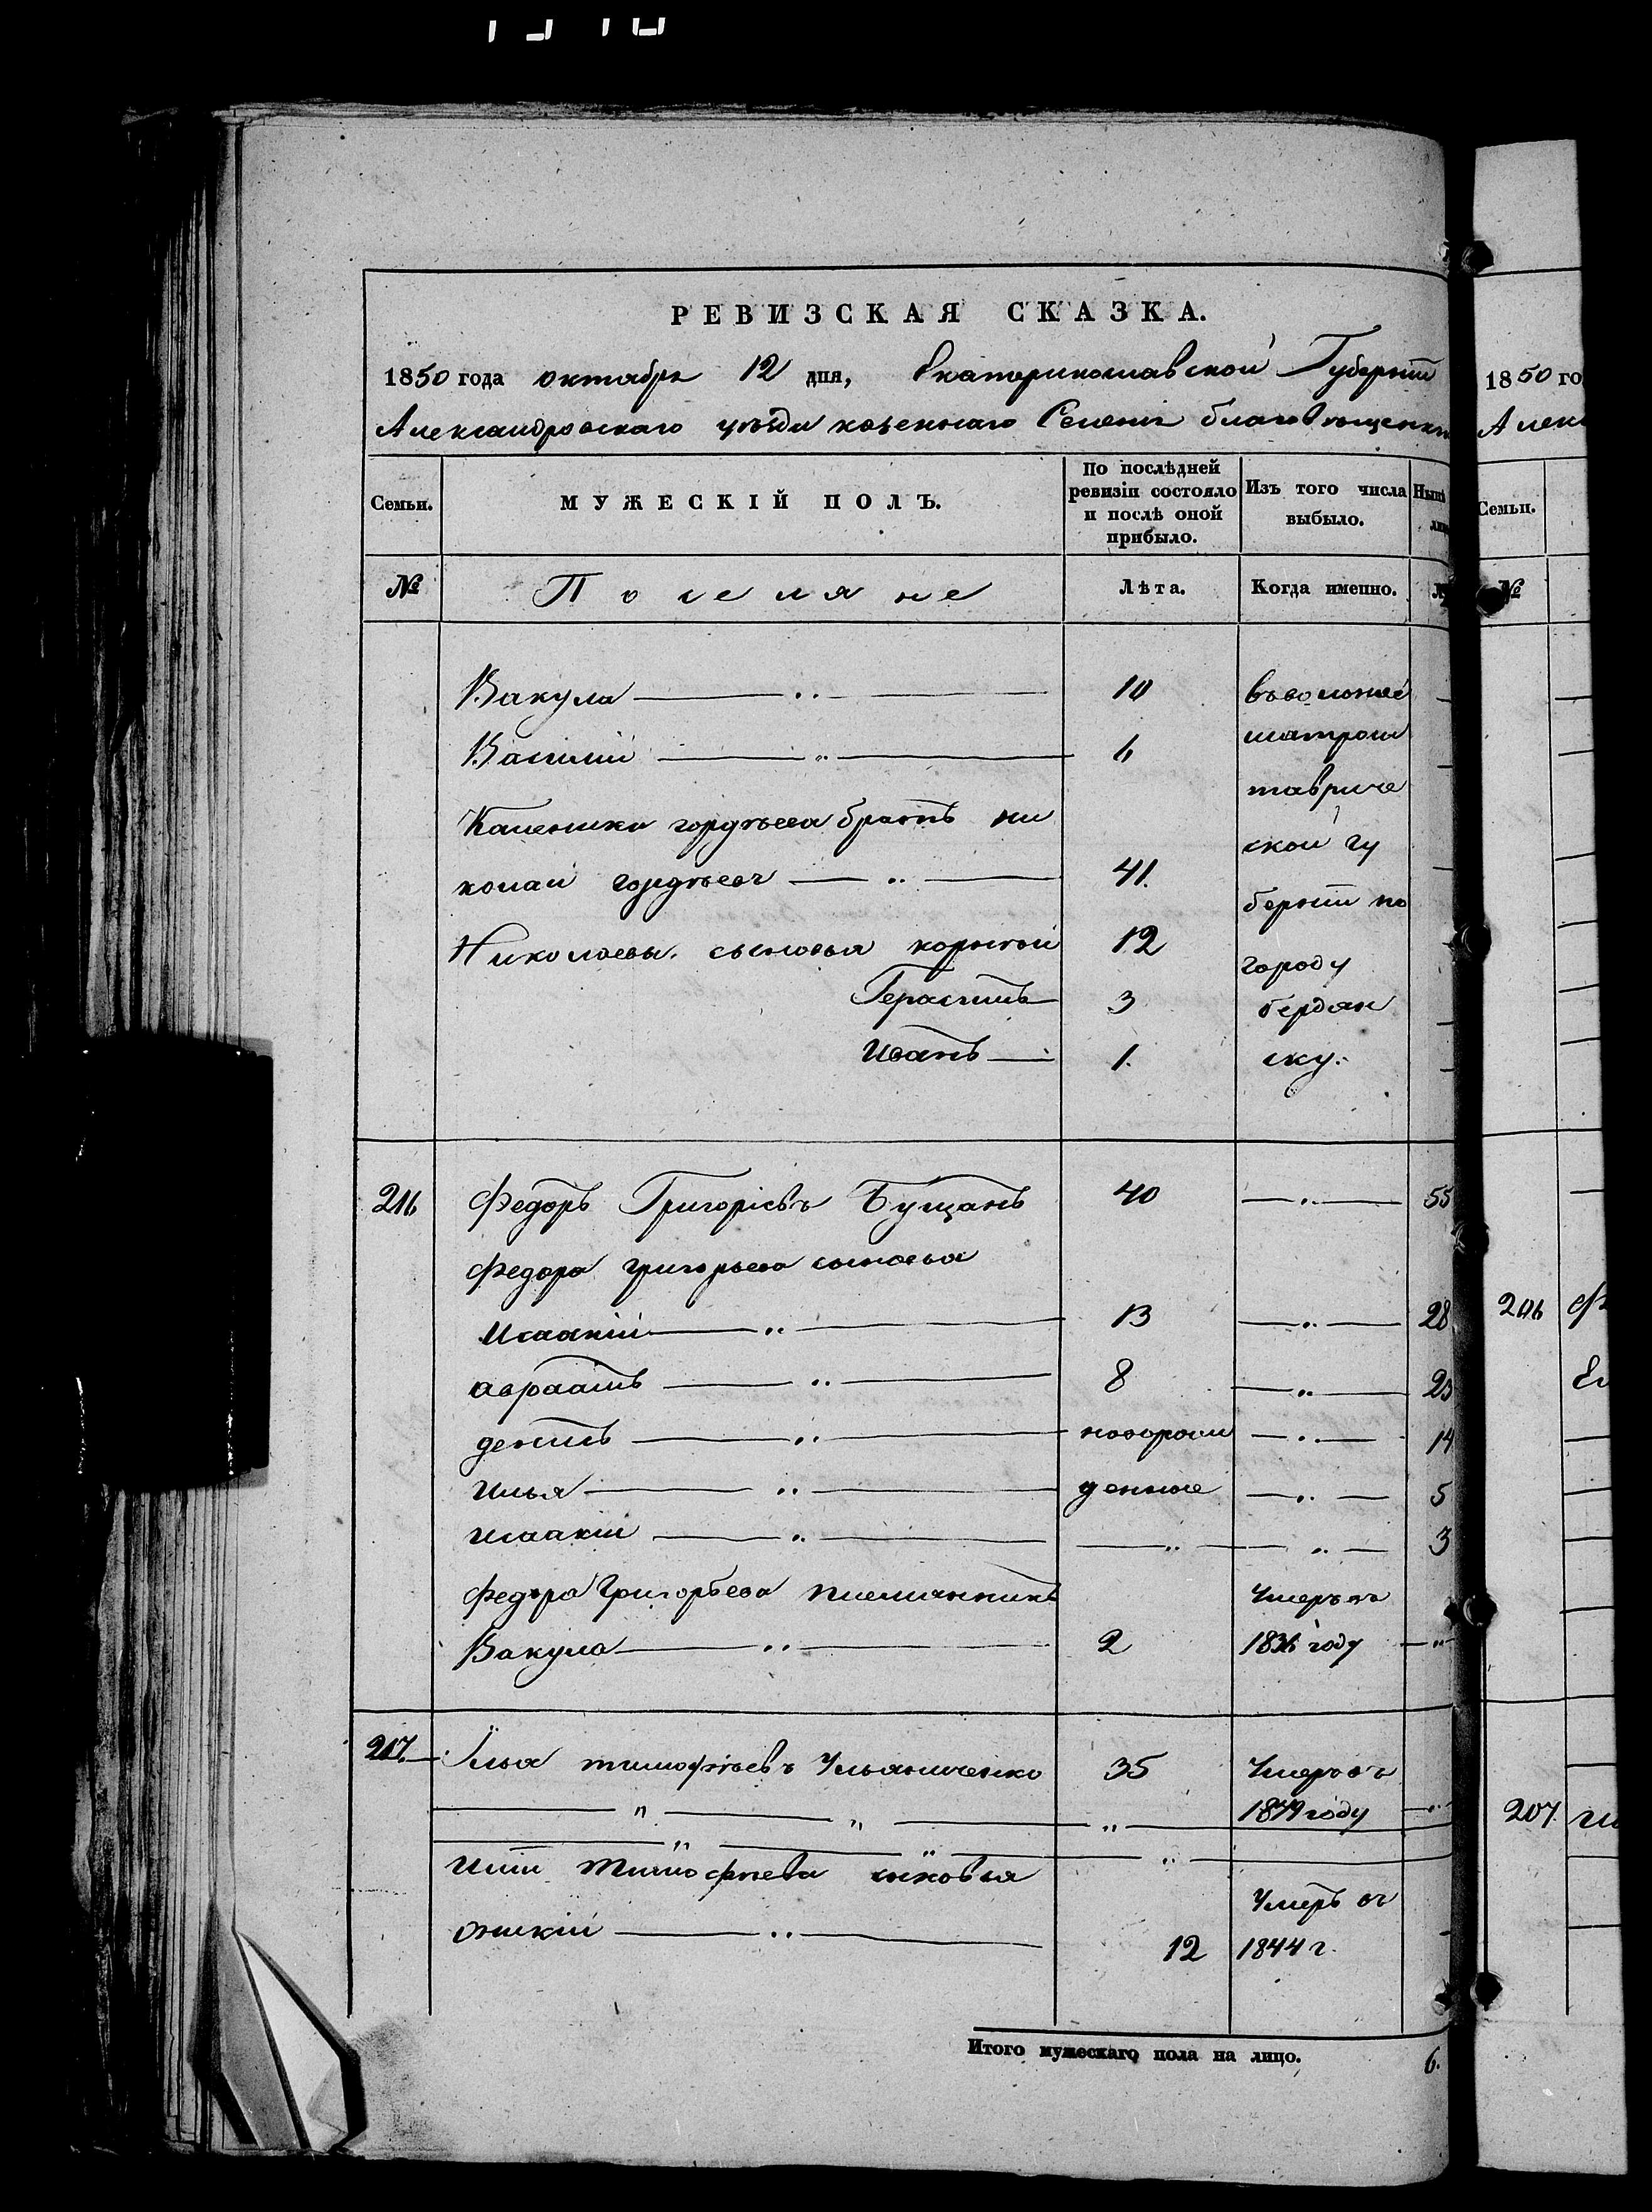 РЕВИЗСКАЯ СКАЗКА.
1850 года октября 12 дня, Екатеринославской Губерніи
Александровскаго уѣзда казеннаго Селенія благовѣщенки
Семьи.
МУЖЕСКІЙ ПОЛЪ.
По послѣдней ревизіи состояло и послѣ оной прибыло.
Изъ того числа выбыло.
№
Поселяне
Лѣта.
Когда именно.
Вакула 10
Василій 6
тавриче
ской гу
Каленика гордѣева братъ ни
колай гордѣевъ 41.
берніи по
Николаевы сыновья корнѣй 12
городу
Герасимъ 3 бердян
Иванъ 1. ску.
216 Федоръ Григоріевъ Бущанъ 40 55
Федора григорьева сыновья
Исаакій 13 28
авраамъ 8 23
денисъ новорож 14
илья денные 5
исаакій 3
Федора Григорьева племянникъ Умеръ въ
Вакула 2 1836 году
217. Илья тимофѣевъ Ульяниченко 35 Умеръ въ
1849 году
Ильи Тимофѣева сыновья
Умеръ въ
12 1844 г.
Итого мужескаго пола на лицо. 6.
1850 го
Семьи.
№
216
207.